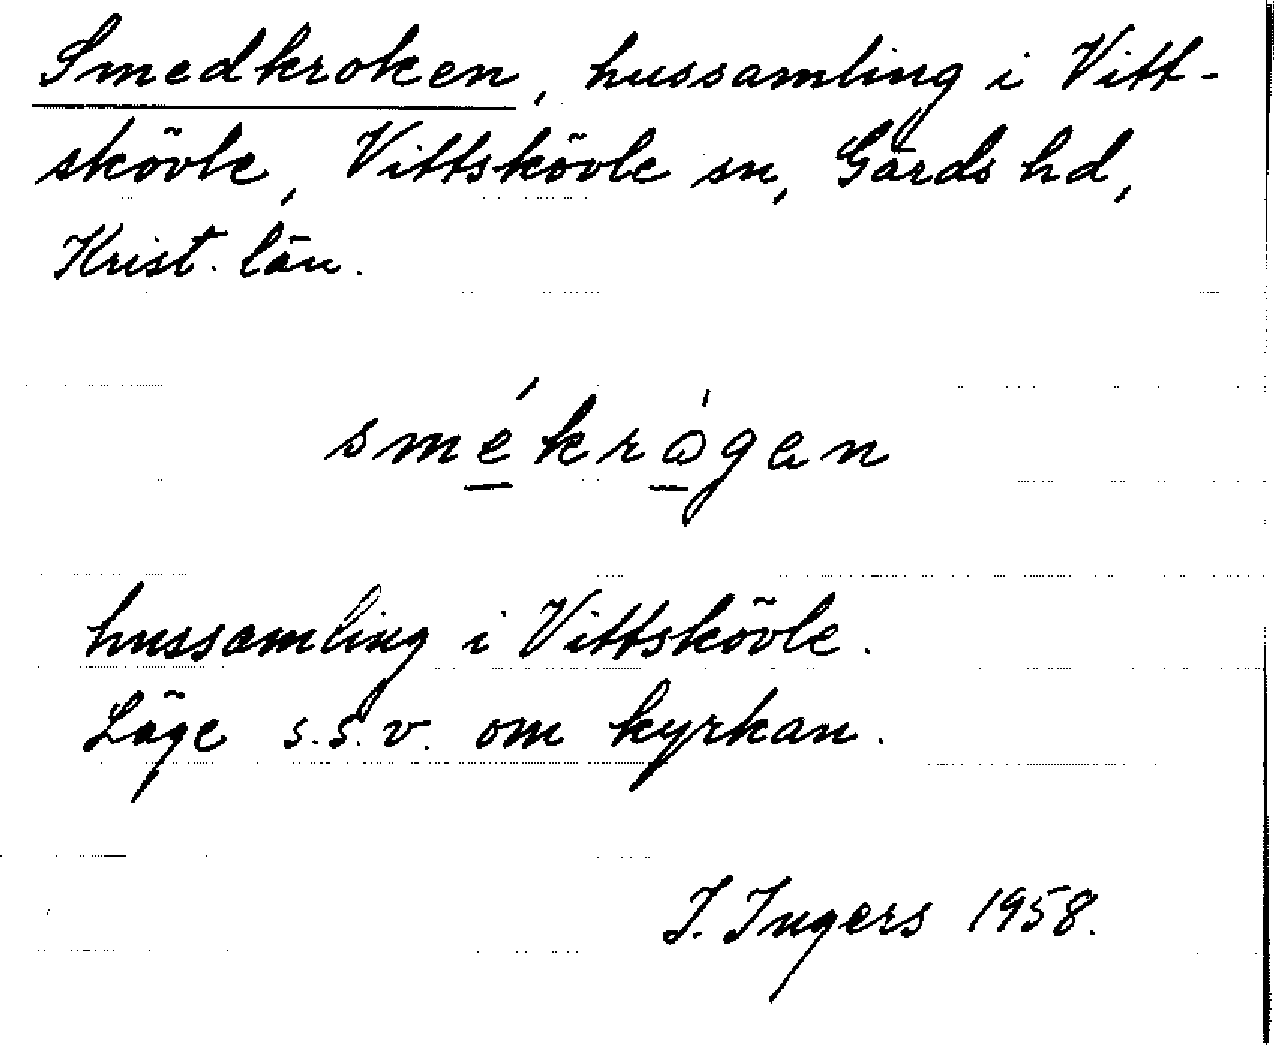 Smedkroken, hussamling i Vitt-
skövle, Vittskövle sn, Gärds hd,
Krist. län.
smékrògan
hussamling i Vittskövle.
Läge s.s.v. om kyrkan.
I. Ingers 1958.